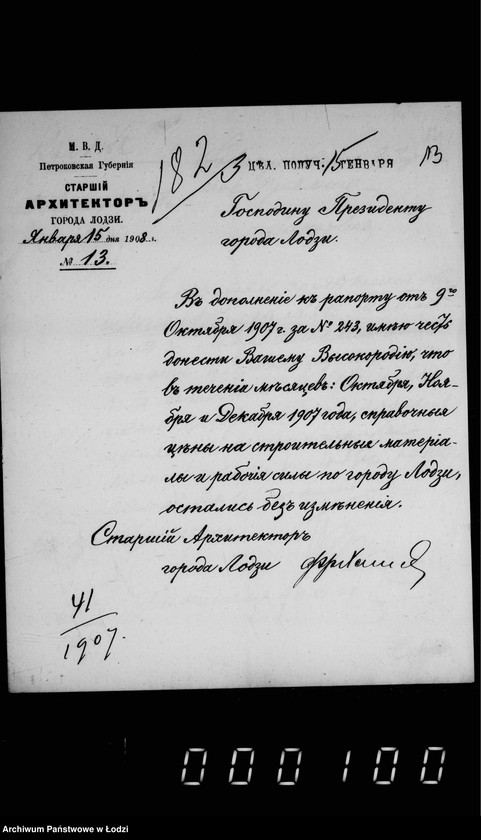 М. В. Д.
Петроковская Губернія
СТАРШІЙ
АРХИТЕКТОРЪ
ГОРОДА ЛОДЗИ.
Января 15 дня 1908 г.
№ 13.
182
3
ЦѢА. ПОЛУЧ: 15 ГЕНВАРЯ
113
Господину Президенту
города Лодзи.
Въ дополненіе къ рапорту отъ 9го
Октября 1907 г. за № 243, имѣю честь
донести Вашему Высокородію, что
въ теченіи мѣсяцевъ: Октября, Ноя-
бря и Декабря 1907 года, справочныя
цѣны на строительные матеріа-
лы и рабочія силы по городу Лодзи,
остались безъ измѣненія.
Старшій Архитекторъ
города Лодзи
41
1907.
000100
Archiwum Państwowe w Łodzi